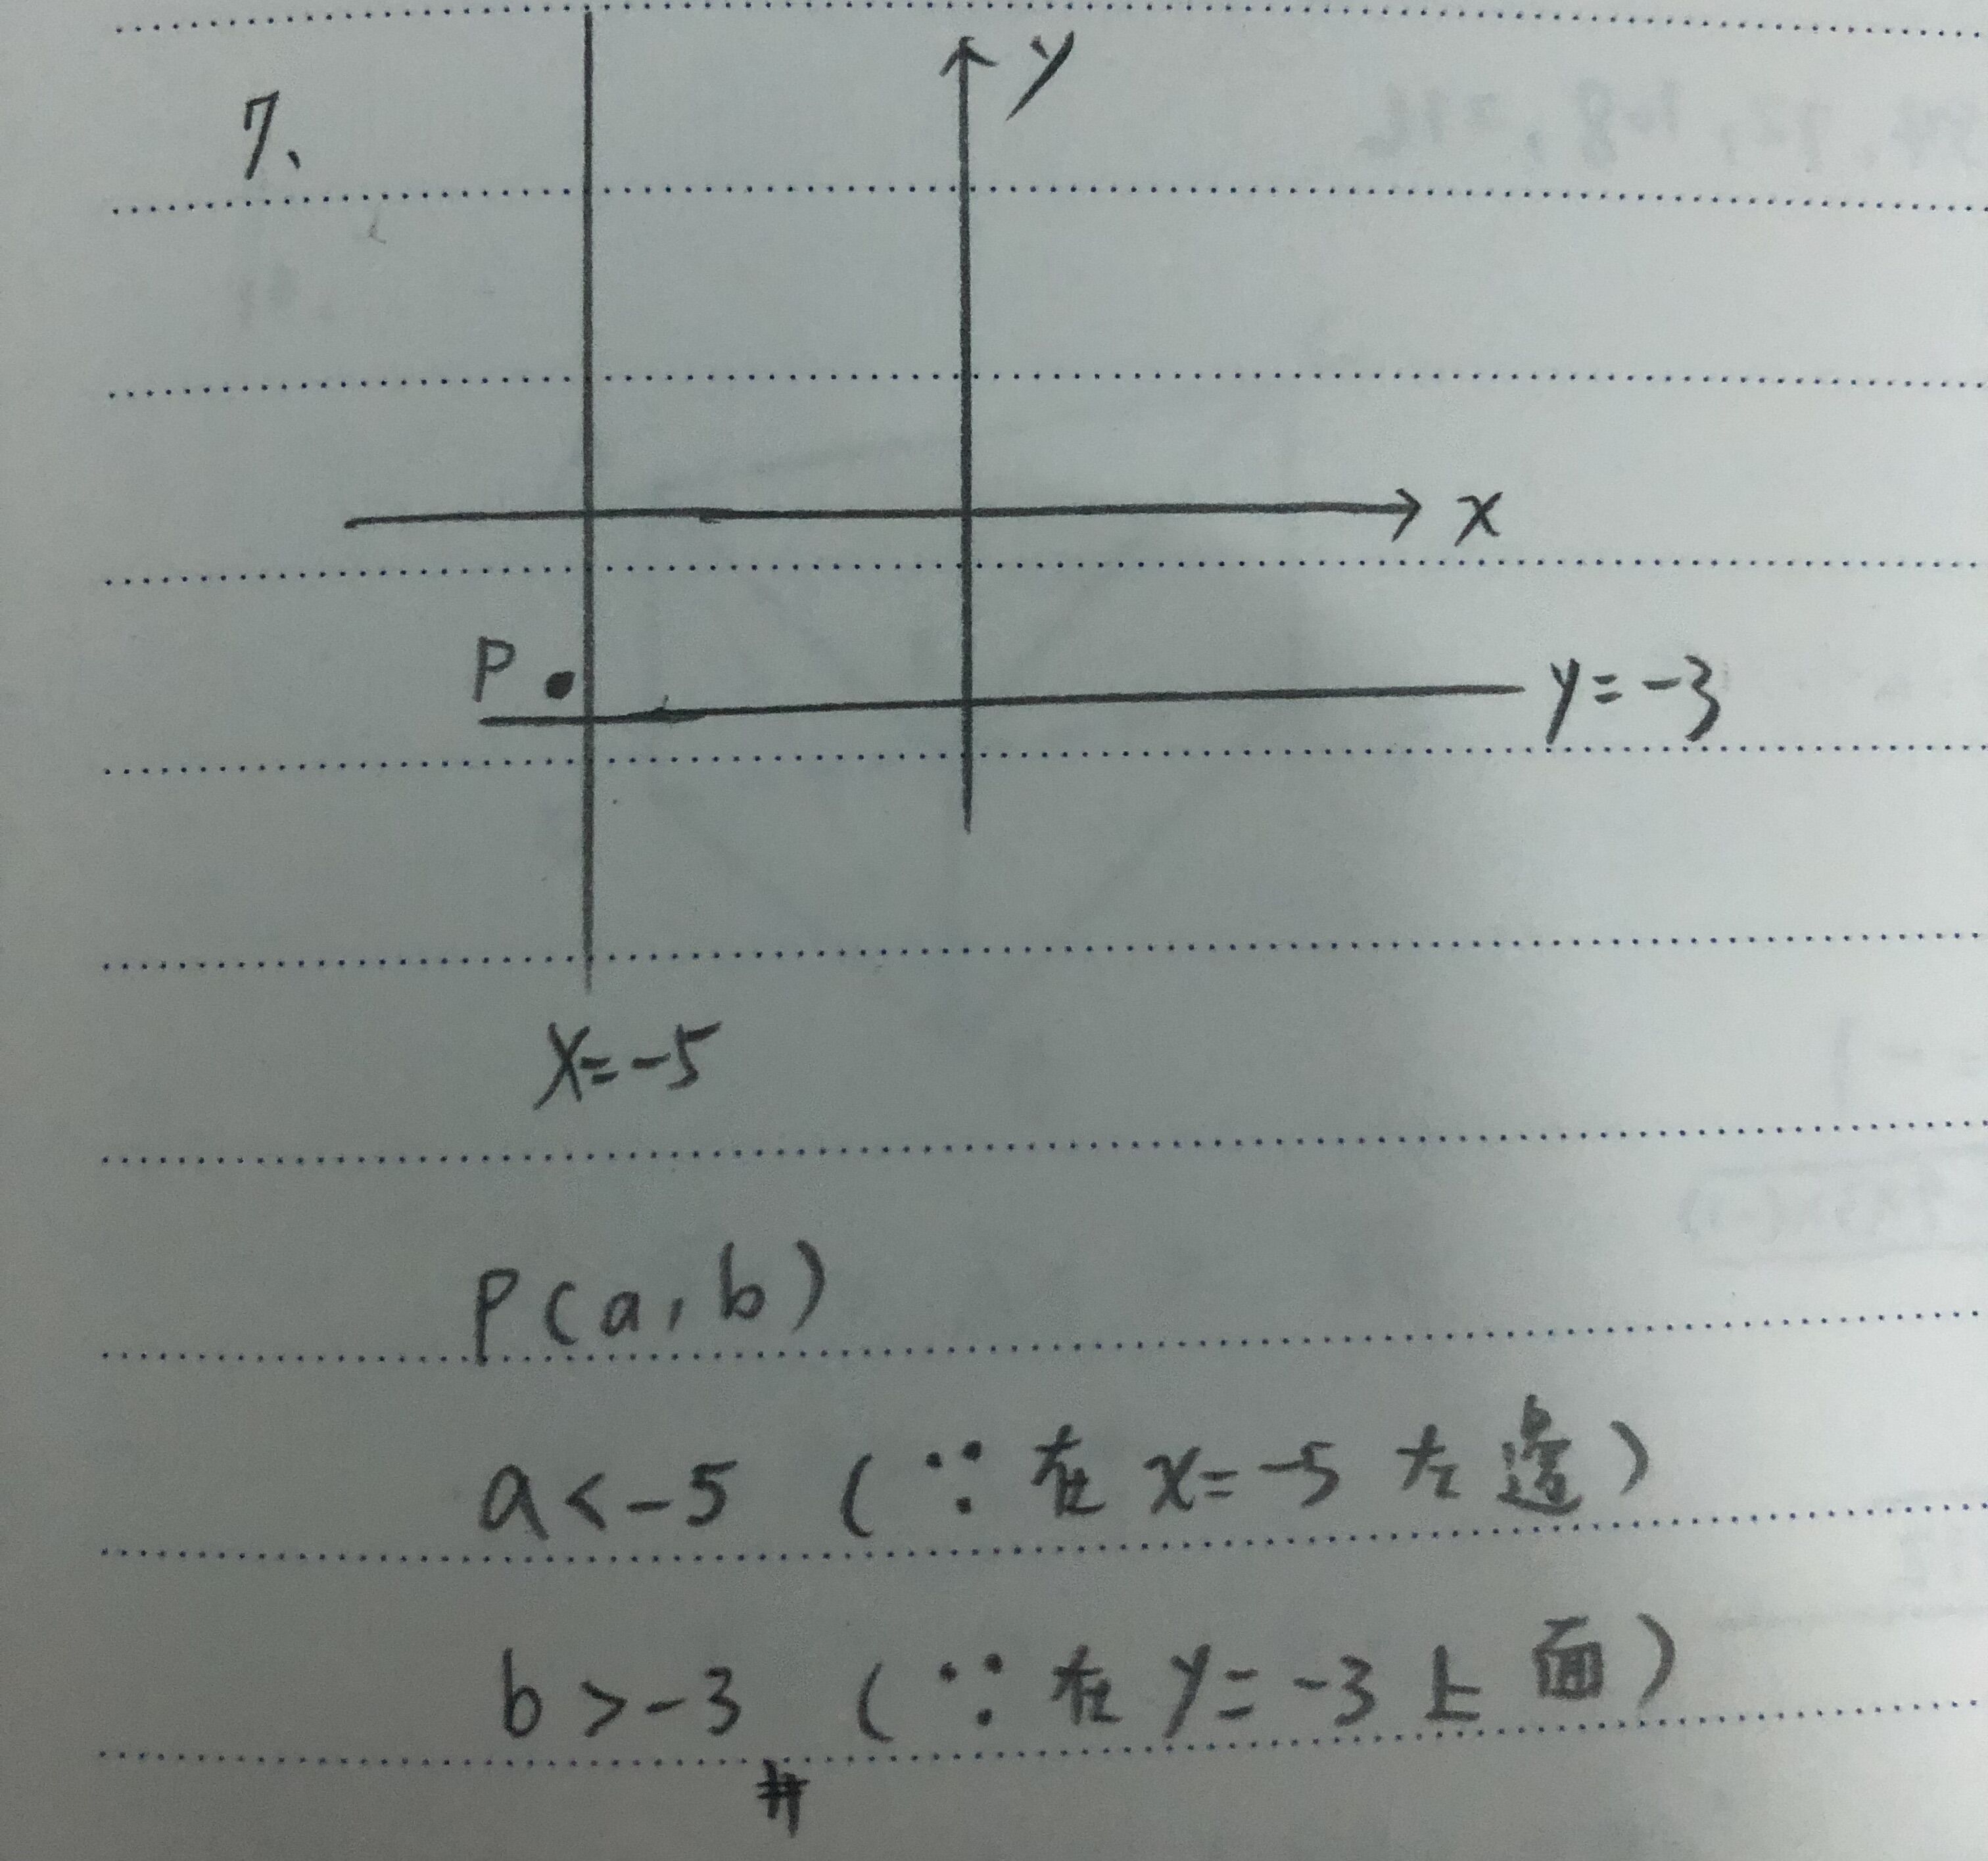 7、
y
x
P
y=-3
x=-5
P(a,b)
a<-5 (∵在x=-5左邊)
b>-3 (∵在y=-3上面)
#